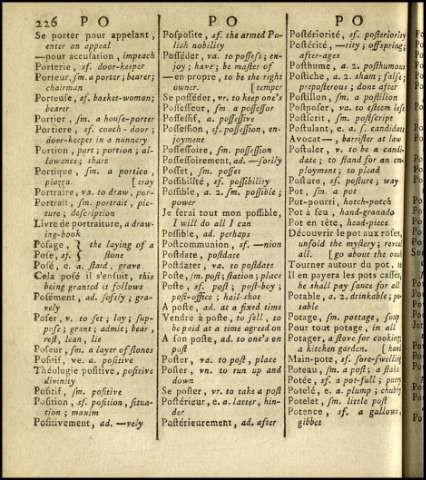 226 P O
P O
P O
Se porter pour appelant,
enter an appeal
—pour accusation, impeach
Porterie, sf. door-keeper
Porteur, sm. a porter; bearer;
chairman
Porteuse, sf. basket-woman;
bearer
Portier, sm. a house-porter
Portiere, sf. coach-door;
door-keeper in a nunnery
Portion, part; portion; al-
lowances; share
Portique, sm. a portico,
piazza [tray
Portraire, va. to draw, por-
Portrait, sm. portrait, pic-
ture; description
Livre de portraiture, a draw-
ing-book
Posage, } the laying of a
Pose, sf. } stone
Posé, e. a. staid, grave
Cela posé il s'ensuit, this
being granted it follows
Posément, ad. softly; gra-
vely
Poser, v. to set; lay; sup-
pose; grant; admit; bear,
rest, lean, lie
Poseur, sm. a layer of stones
Positif, ve. a. positive
Théologie positive, positive
divinity
Positif, sm. positive
Position, sf. position, situa-
tion; maxim
Positivement, ad. —vely
Pospolite, sf. the armed Po-
lish nobility
Posséder, va. to possess; en-
joy; have; be master of
—en propre, to be the right
owner. [temper
Se posséder, vr. to keep one's
Possesseur, sm. a possessor
Possessif, a. possessive
Possession, sf. possession, en-
joyment
Possessoire, sm. possession
Possessoirement, ad. —sorily
Posset, sm. posset
Possibilité, sf. possibility
Possible, a. 2. sm. possible;
power
Je ferai tout mon possible,
I will do all I can
Possible, ad. perhaps
Postcommunion, sf. —nion
Postdate, postdate
Postdater, va. to postdate
Poste, sm. post; station; place
Poste, sf. post; post-boy;
post-office; hail-shot
A poste, ad. at a fixed time
Vendre à poste, to sell, to
be paid at a time agreed on
A son poste, ad. to one's on
post
Poster, va. to post, place
Poster, vn. to run up and
down
Se poster, vr. to take a post
Postérieur, e. a. latter, hin-
der
Postérieurement, ad. after
Postériorité, sf. posteriority
Postérité, —rity; offspring;
after-ages
Posthume, a. 2. posthumous
Postiche, a. 2. sham; false;
preposterous; done after
Postillon, sm. a postilion
Postposer, va. to esteem less
Postscrit, sm. postscript
Postulant, e. a. s. candidate
Avocat—, barrister at law
Postuler, v. to be a candi-
date; to stand for an em-
ployment; to plead
Posture, sf. posture; way
Pot, sm. a pot
Pot-pourri, hotch-potch
Pot à feu, hand-granado
Pot en tête, head-piece
Découvrir le pot aux roses,
unfold the mystery; reveal
all. [go about the
Tourner autour du pot, to
Il en payera les pots cassés,
he shall pay sauce for all
Potable, a. 2. drinkable; po-
table
Potage, sm. pottage, soup
Pour tout potage, in all
Potager, a stove for cooking
a kitchen garden.
Main-pote, sf. sore-swelling
Poteau, sm. a post; a stake
Potée, sf. a pot-full; putty
Potelé, e. a. plump; chubby
Potelet, sm. little post
Potence, sf. a gallows,
gibbet